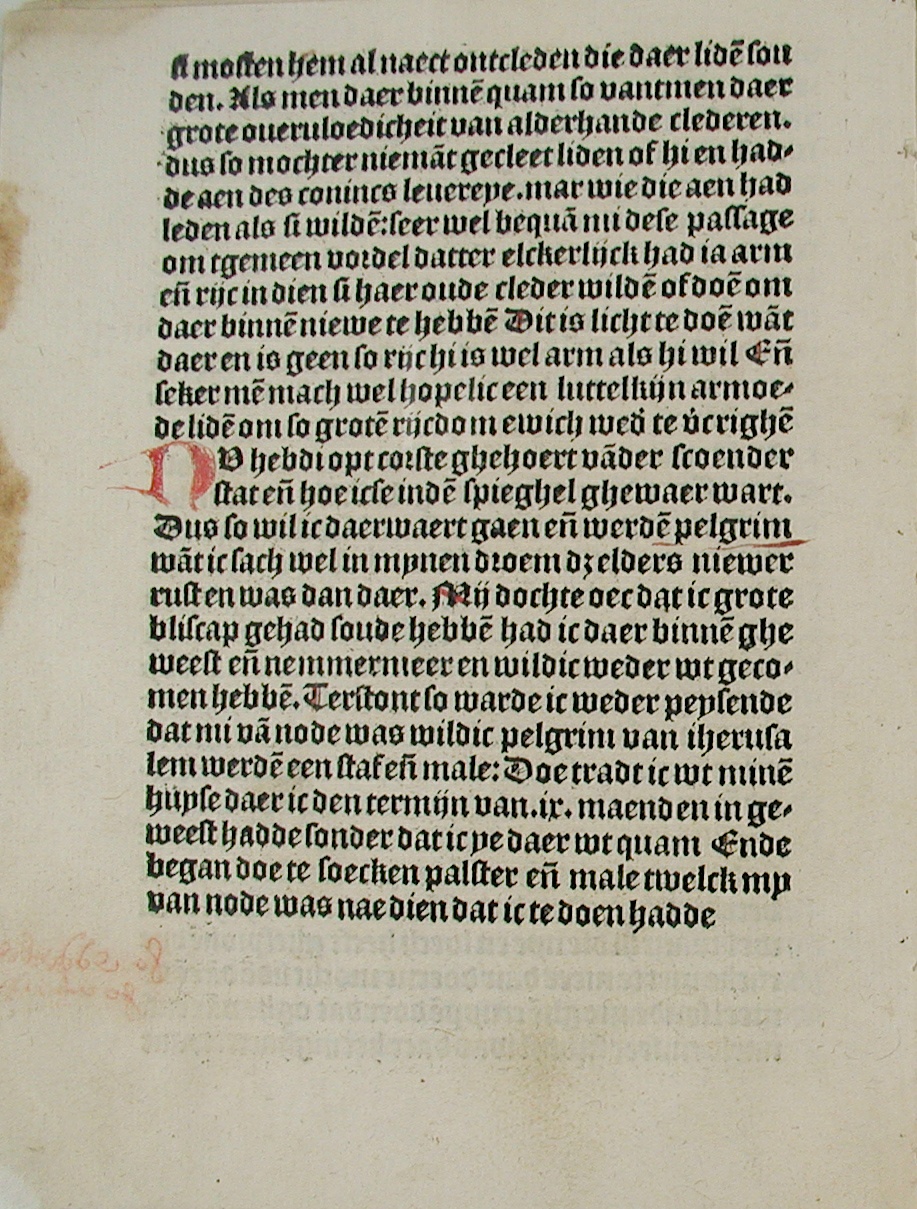 si mosten hem al naect ontcleden die daer lidē sou
den. Als men daer binnē quam so vantmen daer
grote oueruloedicheit van alderhande clederen.
dus so mochter niemāt gecleet liden of hi en had-
de aen des conincs leuereye. mar wie die aen had
leden als si wildē: seer wel bequā mi dese passage
om tgemeen vordel datter elckerlijck had ia arm
eñ rijc in dien si haer oude cleder wildē of doē om
daer binnē niewe te hebbē Dit is licht te doē wāt
daer en is geen so rijc hi is wel arm als hi wil Eñ
seker mē mach wel hopelic een luttelkijn armoe-
de lidē om so grotē rijcdom ewich wed̛ te v̛crighē
NV hebdi opt corste ghehoert vāder scoender
stat eñ hoe icse indē spieghel ghewaer wart.
Dus so wil ic daerwaert gaen eñ werdē pelgrim
wāt ic sach wel in mynen droem dz elders niewer
rusten was dan daer. Mij dochte oec dat ic grote
bliscap gehad soude hebbē had ic daer binnē ghe
weest eñ nemmermeer en wildic weder wt geco-
men hebbē. Terstont so warde ic weder peysende
dat mi vā node was wildic pelgrim van iherusa
lem werdē een staf eñ male: Doe tradt ic wt minē
huyse daer ic den termijn van .ix. maenden in ge-
weest hadde sonder dat ic ye daer wt quam Ende
began doe te soecken palster eñ male twelck my
van node was nae dien dat ic te doen hadde